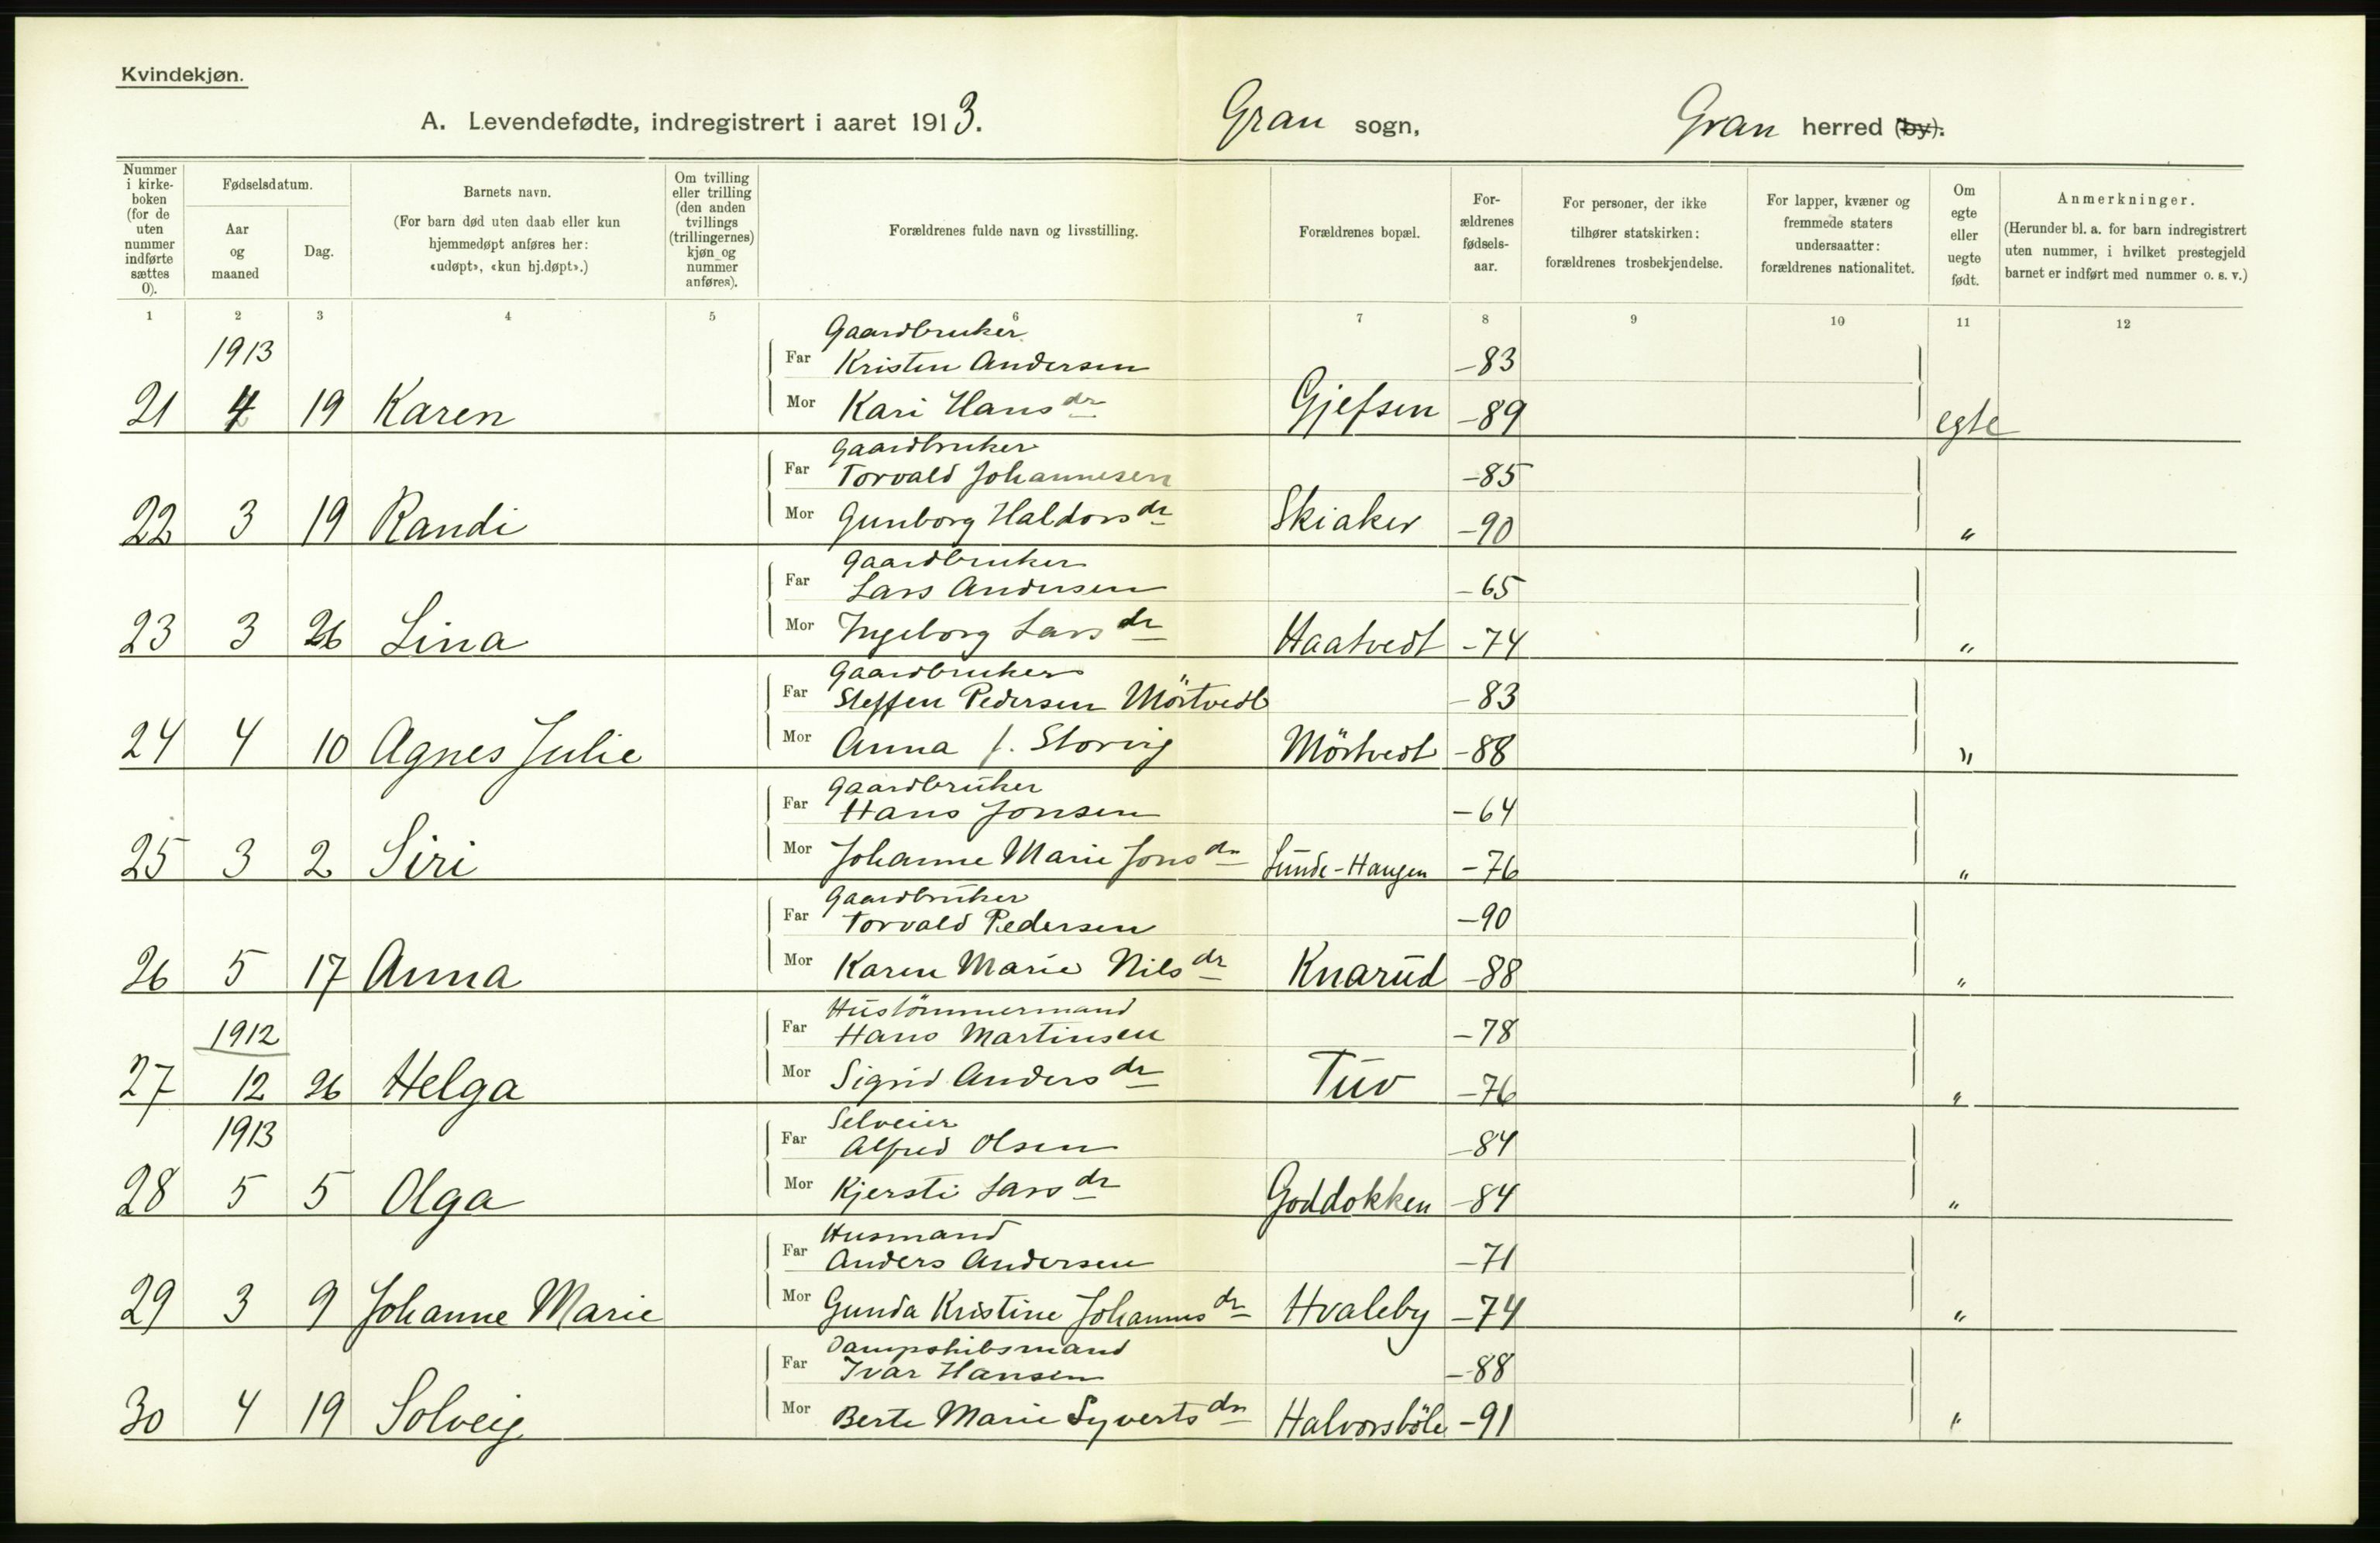 Kvindekjøn.
A. Levendefødte, indregistrert i aaret 1913. Gran sogn, Gran herred (by).
Nummer i kirkeboken (for de uten nummer indførte sættes 0).
Fødselsdatum.
Aar og maaned
Dag.
Barnets navn.
(For barn død uten daab eller kun hjemmedøpt anføres her: «udøpt», «kun hj.døpt».)
Om tvilling eller trilling (den anden tvillings (trillingernes) kjøn og nummer anføres).
Forældrenes fulde navn og livsstilling.
Forældrenes bopæl.
Forældrenes fødselsaar.
For personer, der ikke tilhører statskirken: forældrenes trosbekjendelse.
For lapper, kvæner og fremmede staters undersaatter: forældrenes nationalitet.
Om egte eller uegte født.
Anmerkninger.
(Herunder bl. a. for barn indregistrert uten nummer, i hvilket prestegjeld barnet er indført med nummer o. s. v.)
1 2 3 4 5 6 7 8 9 10 11 12
Gaardbruker
1913 Far Kristen Andersen -83
21 4 19 Karen Mor Kari Hansdr Gjefsen -89 egte
Gaardbruker
Far Torvald Johannesen -85
22 3 19 Randi Mor Gunborg Haldorsdr Skiaker -90 "
Gaardbruker
Far Lars Andersen -65
23 3 26 Lina Mor Ingeborg Larsdr Haatvedt -74 "
Gaardbruker
Far Steffen Pedersen Mörtvedt -83
24 4 10 Agnes Julie Mor Anna f. Storvig Mörtvedt -88 "
Gaardbruker
Far Hans Jonsen -64
25 3 2 Siri Mor Johanne Marie Jonsdr Lunde-Haugen -76 "
Gaardbruker
Far Torvald Pedersen -90
26 5 17 Anna Mor Karen Marie Nilsdr Knarud -88 "
Hustömmermand
1912 Far Hans Martinsen -78
27 12 26 Helga Mor Sigrid Andersdr Tuv -76 "
Selveier
1913 Far Alfred Olsen -84
28 5 5 Olga Mor Kjersti Larsdr Goddokken -84 "
Husmand
Far Anders Andersen -71
29 3 9 Johanne Marie Mor Gunda Kristine Johannesdr Hvaleby -74 "
Dampskibsmand
Far Ivar Hansen -88
30 4 19 Solveig Mor Berte Marie Syvertsdr Halvorsböle -91 "